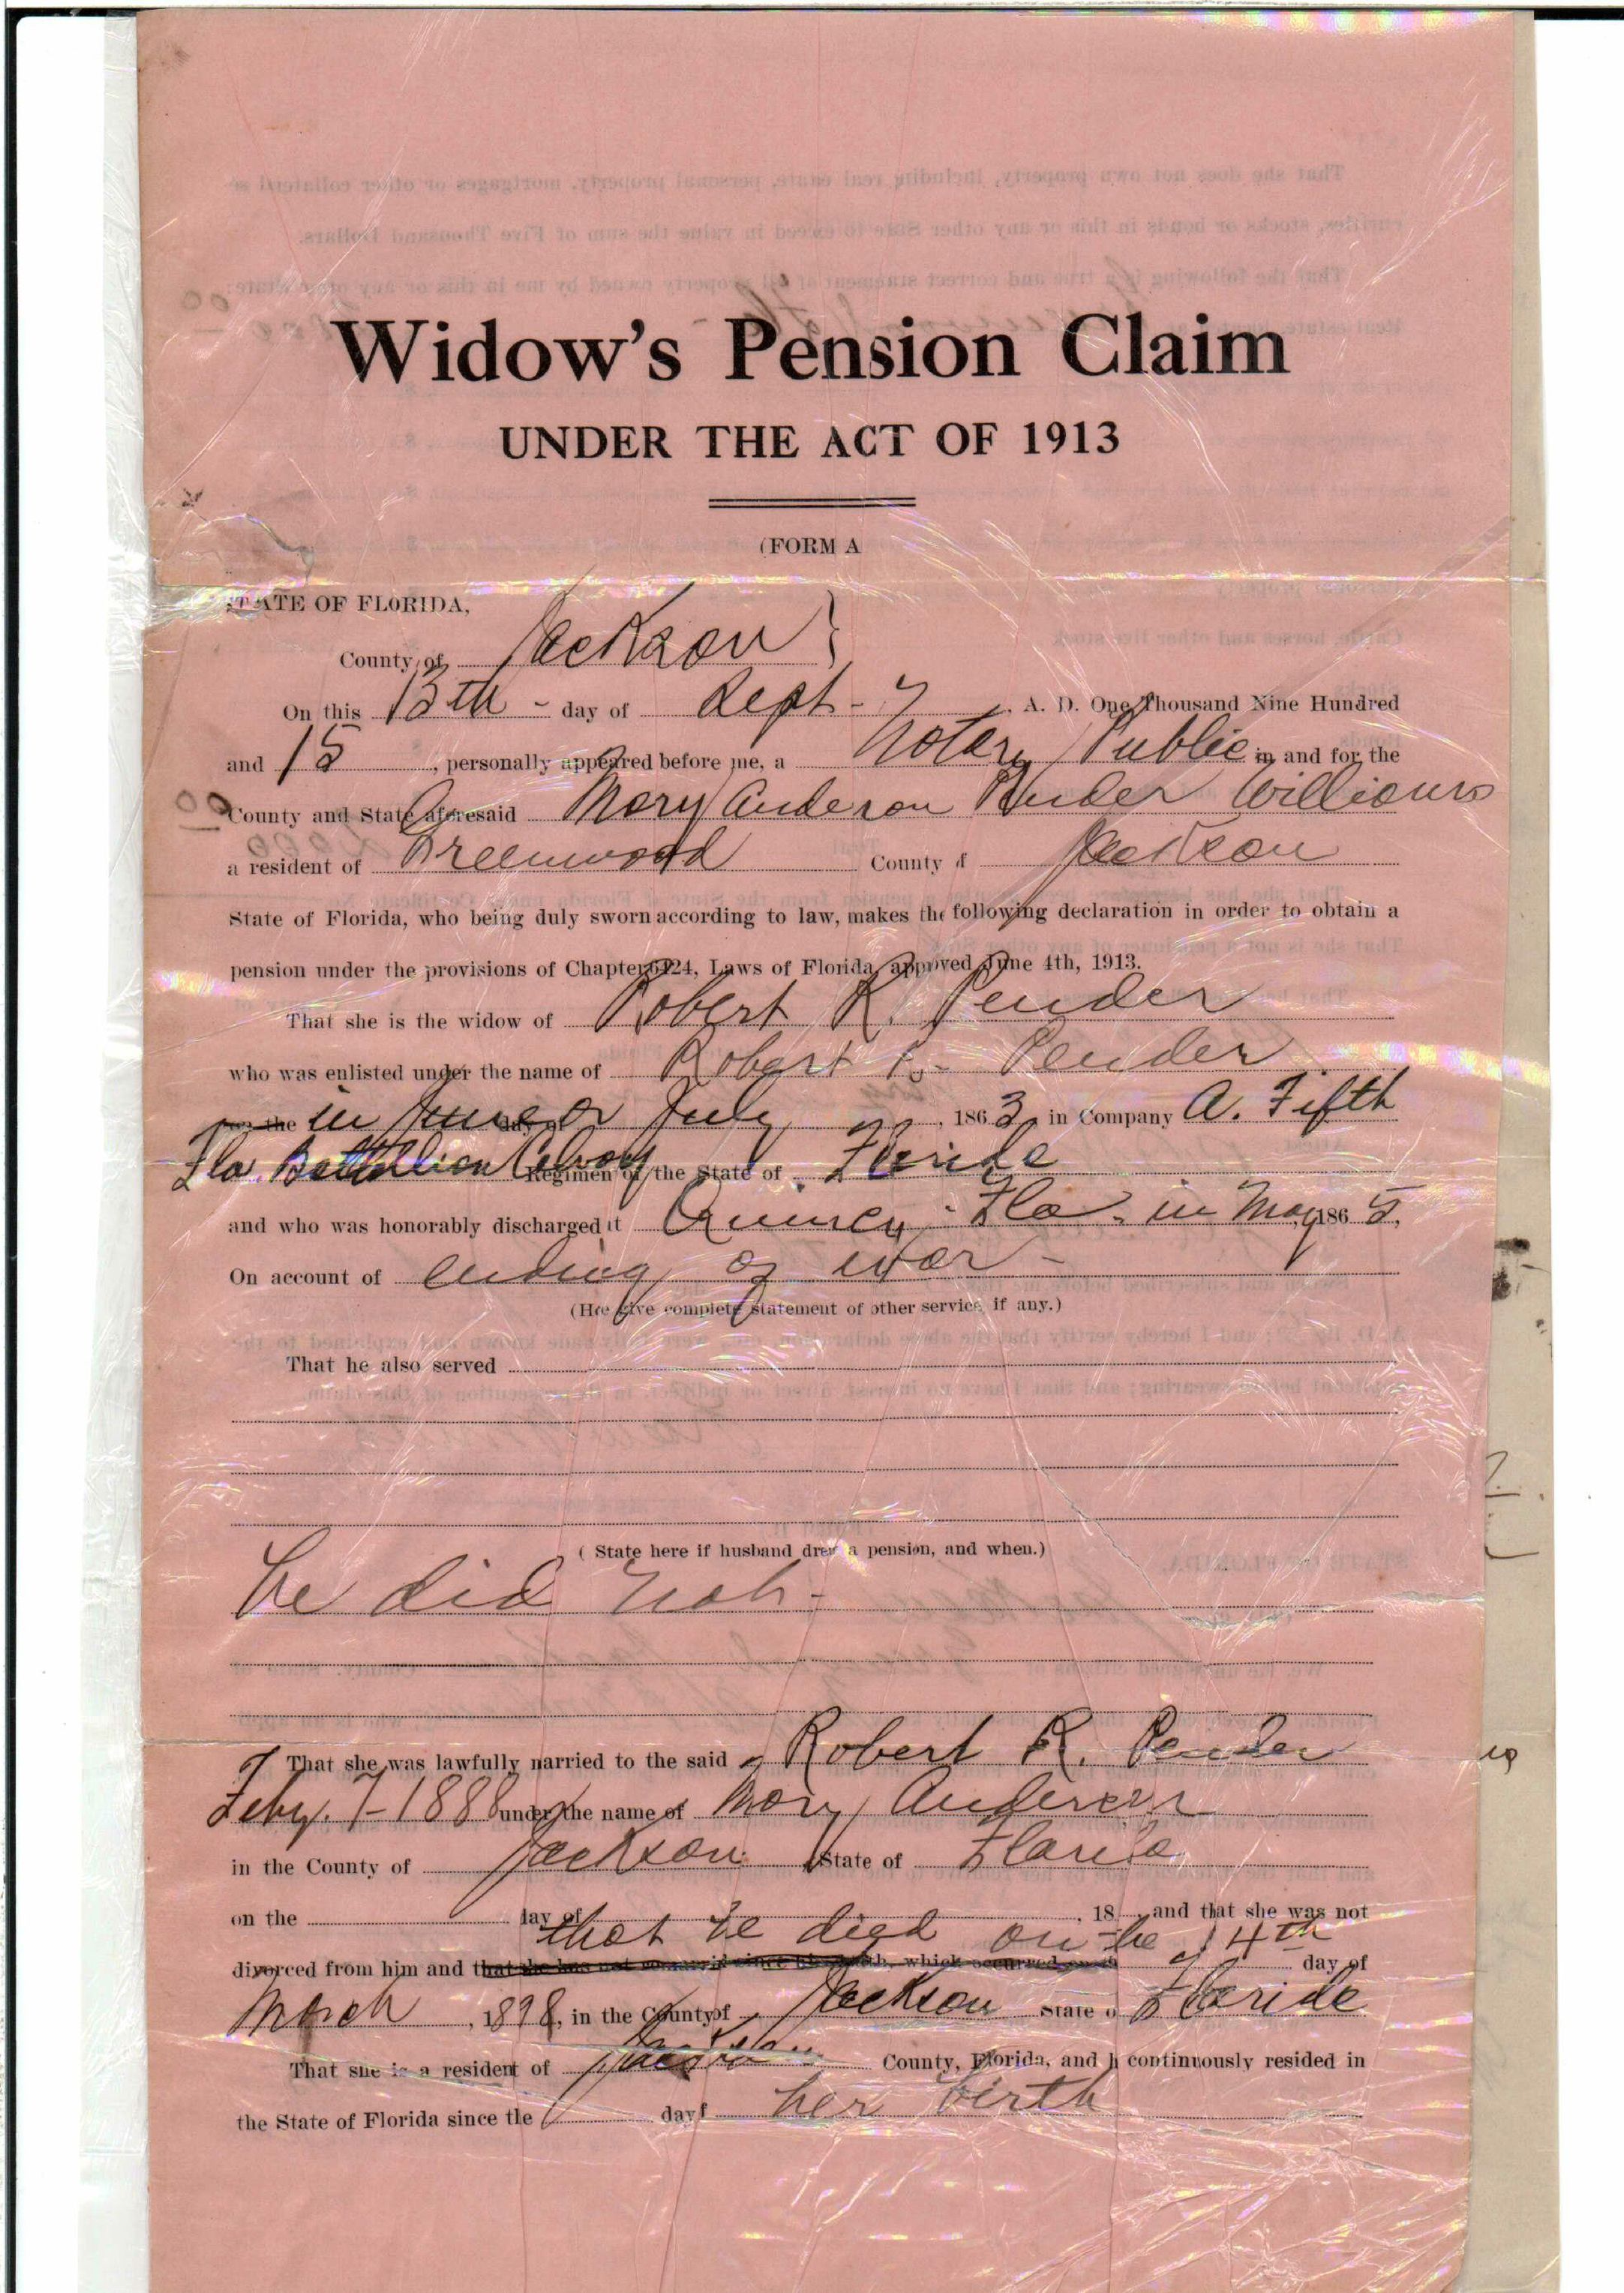 Widow's Pension Claim
UNDER THE ACT OF 1913
(FORM A
STATE OF FLORIDA,
County of Jackson }
On this 13th - day of Sept - A. D. One Thousand Nine Hundred
and 15, personally appeared before me, a Notary Public in and for the
County and State aforesaid Mary Anderson Pender Williams
a resident of Greenwood County of Jackson
State of Florida, who being duly sworn according to law, makes the following declaration in order to obtain a
pension under the provisions of Chapter 6424, Laws of Florida, approved June 4th, 1913.
That she is the widow of Robert R. Pender
who was enlisted under the name of Robert R. Pender
the in June or July, 1863, in Company A. Fifth
Fla. Battallion Calvary Regimen of the State of Florida
and who was honorably discharged at Quincy Fla. in May 1865,
On account of ending of war -
(Here give complete statement of other service, if any.)
That he also served
( State here if husband drew a pension, and when.)
he did not -
That she was lawfully married to the said Robert R. Pender
Feby. 7 - 1888 under the name of Mary Anderson
in the County of Jackson State of Florida
on the day of , 18 and that she was not
that he died on the 14th
divorced from him and that she has not remarried since his death, which occurred on the day of
March, 1898, in the County of Jackson State of Florida
That she is a resident of Jackson County, Florida, and h continuously resided in
the State of Florida since the day of her birth